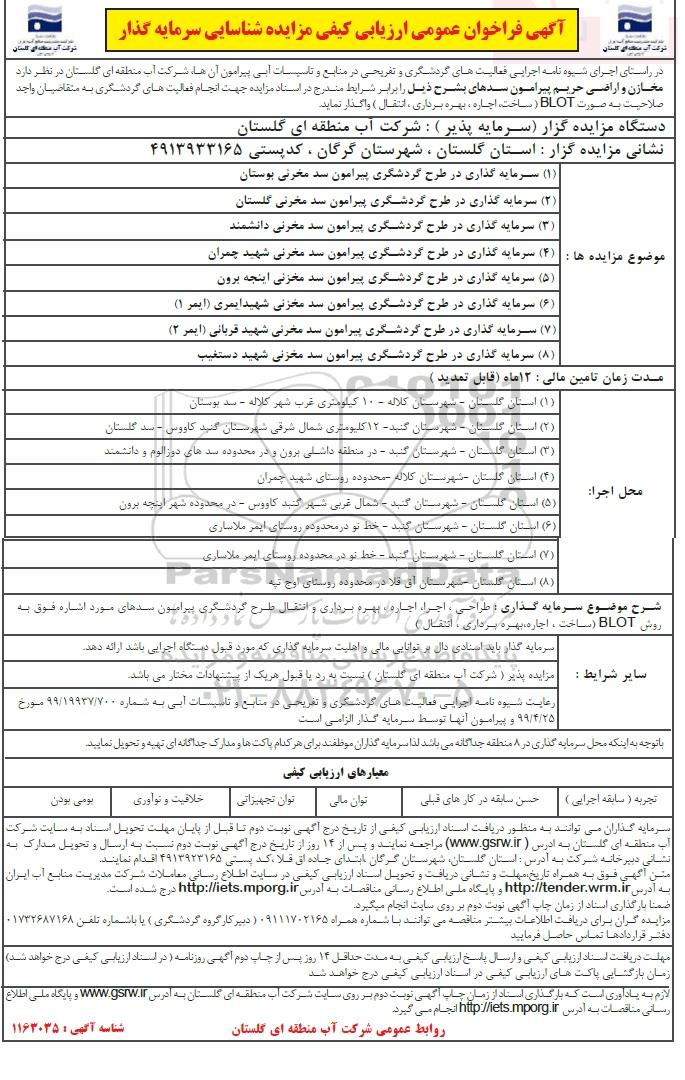 آگهی فراخوان عمومی ارزیابی کیفی مزایده شناسایی سرمایه گذار
شرکت آب منطقه ای گلستان
شرکت آب منطقه ای گلستان
در راستای اجرای شیوه نامه اجرایی فعالیت های گردشگری و تفریحی در منابع و تاسیسات آبی پیرامون آن ها، شرکت آب منطقه ای گلستان در نظر دارد
مخازن و اراضی حریم پیرامون سدهای بشرح ذیل را برابر شرایط مندرج در اسناد مزایده جهت انجام فعالیت های گردشگری به متقاضیان واجد
صلاحیت به صورت BLOT ( ساخت، اجاره ، بهره برداری ، انتقال ) واگذار نماید.
دستگاه مزایده گزار (سرمایه پذیر ) : شرکت آب منطقه ای گلستان
نشانی مزایده گزار : استان گلستان ، شهرستان گرگان ، کدپستی ۴۹۱۳۹۳۳۱۶۵
موضوع مزایده ها :
(۱) سرمایه گذاری در طرح گردشگری پیرامون سد مخزنی بوستان
(۲) سرمایه گذاری در طرح گردشگری پیرامون سد مخزنی گلستان
(۳) سرمایه گذاری در طرح گردشگری پیرامون سد مخزنی دانشمند
(۴) سرمایه گذاری در طرح گردشگری پیرامون سد مخزنی شهید چمران
(۵) سرمایه گذاری در طرح گردشگری پیرامون سد مخزنی اینچه برون
(۶) سرمایه گذاری در طرح گردشگری پیرامون سد مخزنی شهیدایمری (ایمر ۱)
(۷) سرمایه گذاری در طرح گردشگری پیرامون سد مخزنی شهید قربانی (ایمر ۲)
(۸) سرمایه گذاری در طرح گردشگری پیرامون سد مخزنی شهید دستغیب
مدت زمان تامین مالی : ۱۲ماه (قابل تمدید )
محل اجرا:
(۱) استان گلستان - شهرستان کلاله - ۱۰ کیلومتری غرب شهر کلاله - سد بوستان
(۲) استان گلستان - شهرستان گنبد- ۱۲کلیومتری شمال شرقی شهرستان گنبد کاووس - سد گلستان
(۳) استان گلستان - شهرستان گنبد - در منطقه داشلی برون و در محدوده سد های دوزالوم و دانشمند
(۴) استان گلستان -شهرستان کلاله -محدوده روستای شهید چمران
(۵) استان گلستان - شهرستان گنبد - شمال غربی شهر گنبد کاووس - در محدوده شهر اینچه برون
(۶) استان گلستان - شهرستان گنبد - خط نو درمحدوده روستای ایمر ملاساری
(۷) استان گلستان - شهرستان گنبد - خط نو در محدوده روستای ایمر ملاساری
(۸) استان گلستان -شهرستان آق قلا در محدوده روستای اوخ تپه
شرح موضوع سرمایه گذاری : طراحی ، اجرا، اجاره ، بهره برداری و انتقال طرح گردشگری پیرامون سدهای مورد اشاره فوق به
روش BLOT (ساخت ، اجاره،بهره برداری ، انتقال )
سایر شرایط :
سرمایه گذار باید اسنادی دال بر توانایی مالی و اهلیت سرمایه گذاری که مورد قبول دستگاه اجرایی باشد ارائه دهد.
مزایده پذیر ( شرکت آب منطقه ای گلستان ) نسبت به رد یا قبول هریک از پیشنهادات مختار می باشد.
رعایت شیوه نامه اجرایی فعالیت های گردشگری و تفریحی در منابع و تاسیسات آبی به شماره ۹۹/۱۹۹۳۷/۷۰۰ مورخ
۹۹/۴/۲۵ و پیرامون آنها توسط سرمایه گذار الزامی است
باتوجه به اینکه محل سرمایه گذاری در ۸ منطقه جداگانه می باشد لذا سرمایه گذاران موظفند برای هر کدام پاکت ها و مدارک جداگانه ای تهیه و تحویل نمایید.
معیارهای ارزیابی کیفی
تجربه ( سابقه اجرایی )
حسن سابقه در کار های قبلی
توان مالی
توان تجهیزاتی
خلاقیت و نوآوری
بومی بودن
سرمایه گذاران می توانند به منظور دریافت اسناد ارزیابی کیفی از تاریخ درج آگهی نوبت دوم تا قبل از پایان مهلت تحویل اسناد به سایت شرکت
آب منطقه ای گلستان به ادرس ( www.gsrw.ir) مراجعه نمایند و پس از ۱۴ روز از تاریخ درج آگهی نوبت دوم نسبت به ارسال و تحویل مدارک به
نشانی دبیرخانه شرکت به آدرس : استان گلستان، شهرستان گرگان ،ابتدای جاده اق قلا ،کد پستی ۴۹۱۳۹۲۳۱۶۵ اقدام نمایند.
متن آگهی فوق به همراه تاریخ،مهلت و نشانی دریافت و تحویل اسناد ارزیابی کیفی در سایت اطلاع رسانی معاملات شرکت مدیریت منابع آب ایران
به آدرس http://tender.wrm.ir و پایگاه ملی اطلاع رسانی مناقصات به آدرس http://iets.mporg.ir درج شده است.
ضمنا بارگذاری اسناد از زمان چاپ آگهی نوبت دوم بر روی سایت انجام میگیرد.
مزایده گران برای دریافت اطلاعات بیشتر مناقصه می توانند با شماره همراه ۰۹۱۱۱۷۰۲۱۶۵ ( دبیر کار گروه گردشگری ) یا باشماره تلفن ۰۱۷۳۲۶۸۷۱۶۸
دفتر قراردادها تماس حاصل فرمایید
مهلت دریافت اسناد ارزیابی کیفی و ارسال پاسخ ارزیابی کیفی به مدت حداقل ۱۴ روز پس از چاپ دوم آگهی روزنامه ( در اسناد ارزیابی کیفی درج خواهد شد)
زمان بازگشایی پاکت های ارزیابی کیفی در اسناد ارزیابی کیفی درج خواهد شد
لازم به یادآوری است که بارگذاری اسناد از زمان چاپ آگهی نوبت دوم بر روی سایت شرکت آب منطقه ای گلستان به آدرس www.gsrw.ir و پایگاه ملی اطلاع
رسانی مناقصات به آدرس http://iets.mporg.ir انجام می گیرد.
روابط عمومی شرکت آب منطقه ای گلستان
شناسه آگهی : ۱۱۶۳۰۳۵
ParsNamadData
پایگاه اطلاع رسانی مناقصه و مزایده
۰۲۱-۸۸۳۴۹۶۷۰-۵